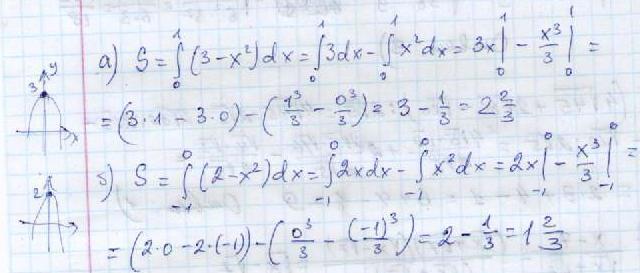 а) S = ∫₀¹ (3 - x²) dx = ∫₀¹ 3dx - ∫₀¹ x² dx = 3x |₀¹ - x³/3 |₀¹ =
= (3·1 - 3·0) - (1³/3 - 0³/3) = 3 - 1/3 = 2 2/3
3 y x
б) S = ∫₋₁⁰ (2 - x²) dx = ∫₋₁⁰ 2xdx - ∫₋₁⁰ x² dx = 2x |₋₁⁰ - x³/3 |₋₁⁰ =
2
= (2·0 - 2·(-1)) - (0³/3 - (-1)³/3) = 2 - 1/3 = 1 2/3